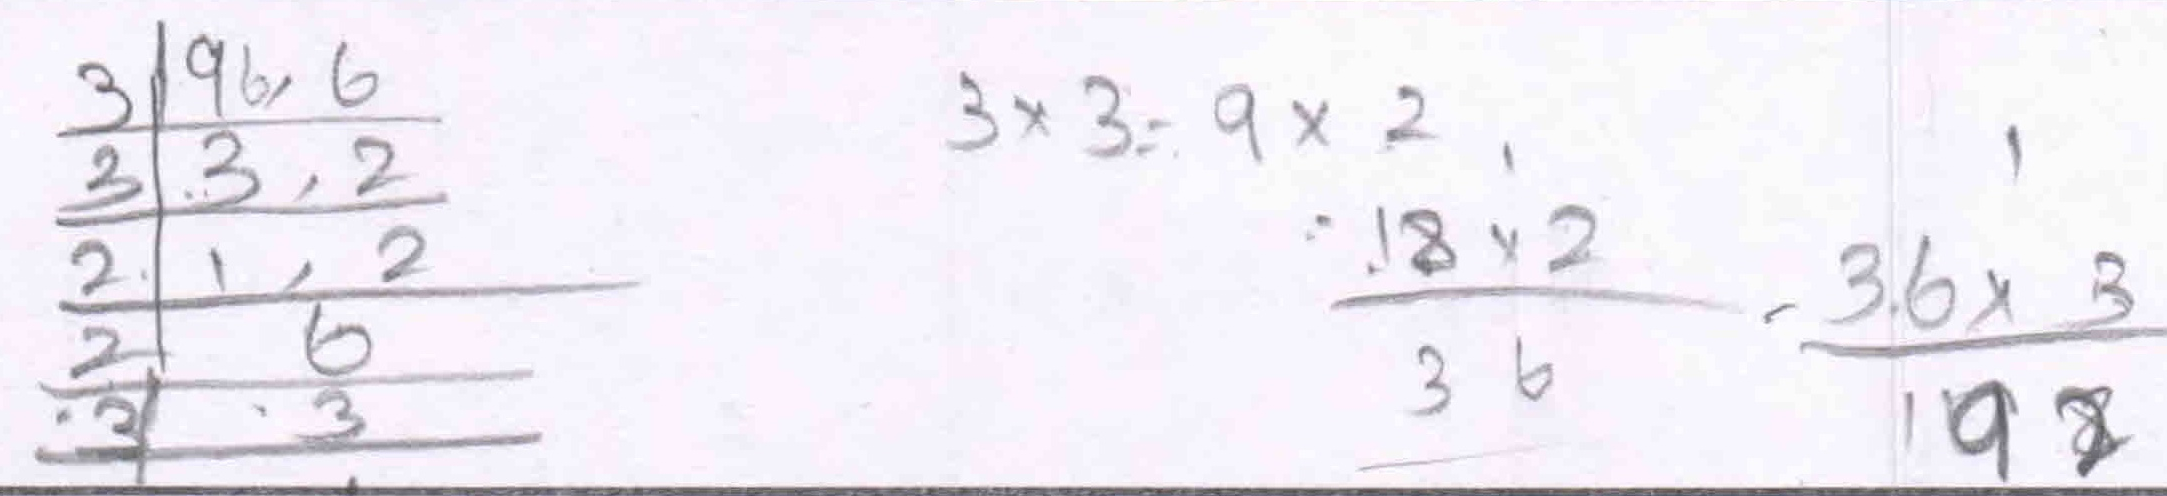 3 | 96, 6
3 | 3, 2
2 | 1, 2
2 | 6
3 | 3
3 × 3 = 9 × 2
1
= 18 × 2
36
1
- 36 × 3
198